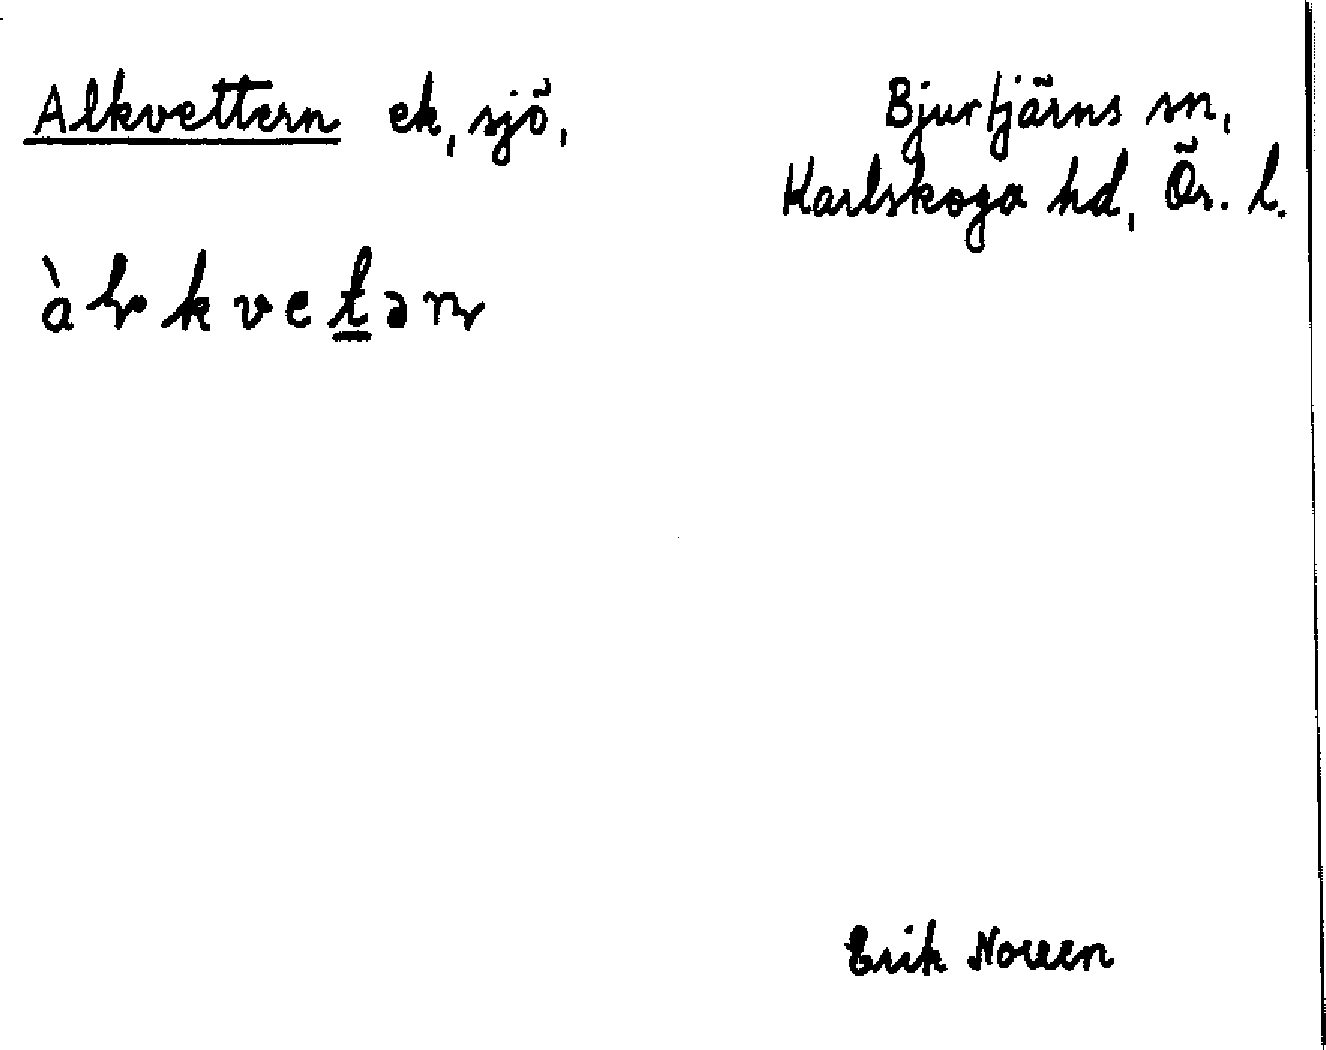 Alkvettern ek, sjö,
Bjurtjärns sn,
Karlskoga hd, Ör. l.
Erik Noreen